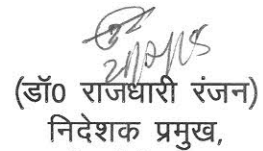 (डॉ0 राजधारी रंजन)
निदेशक प्रमुख,